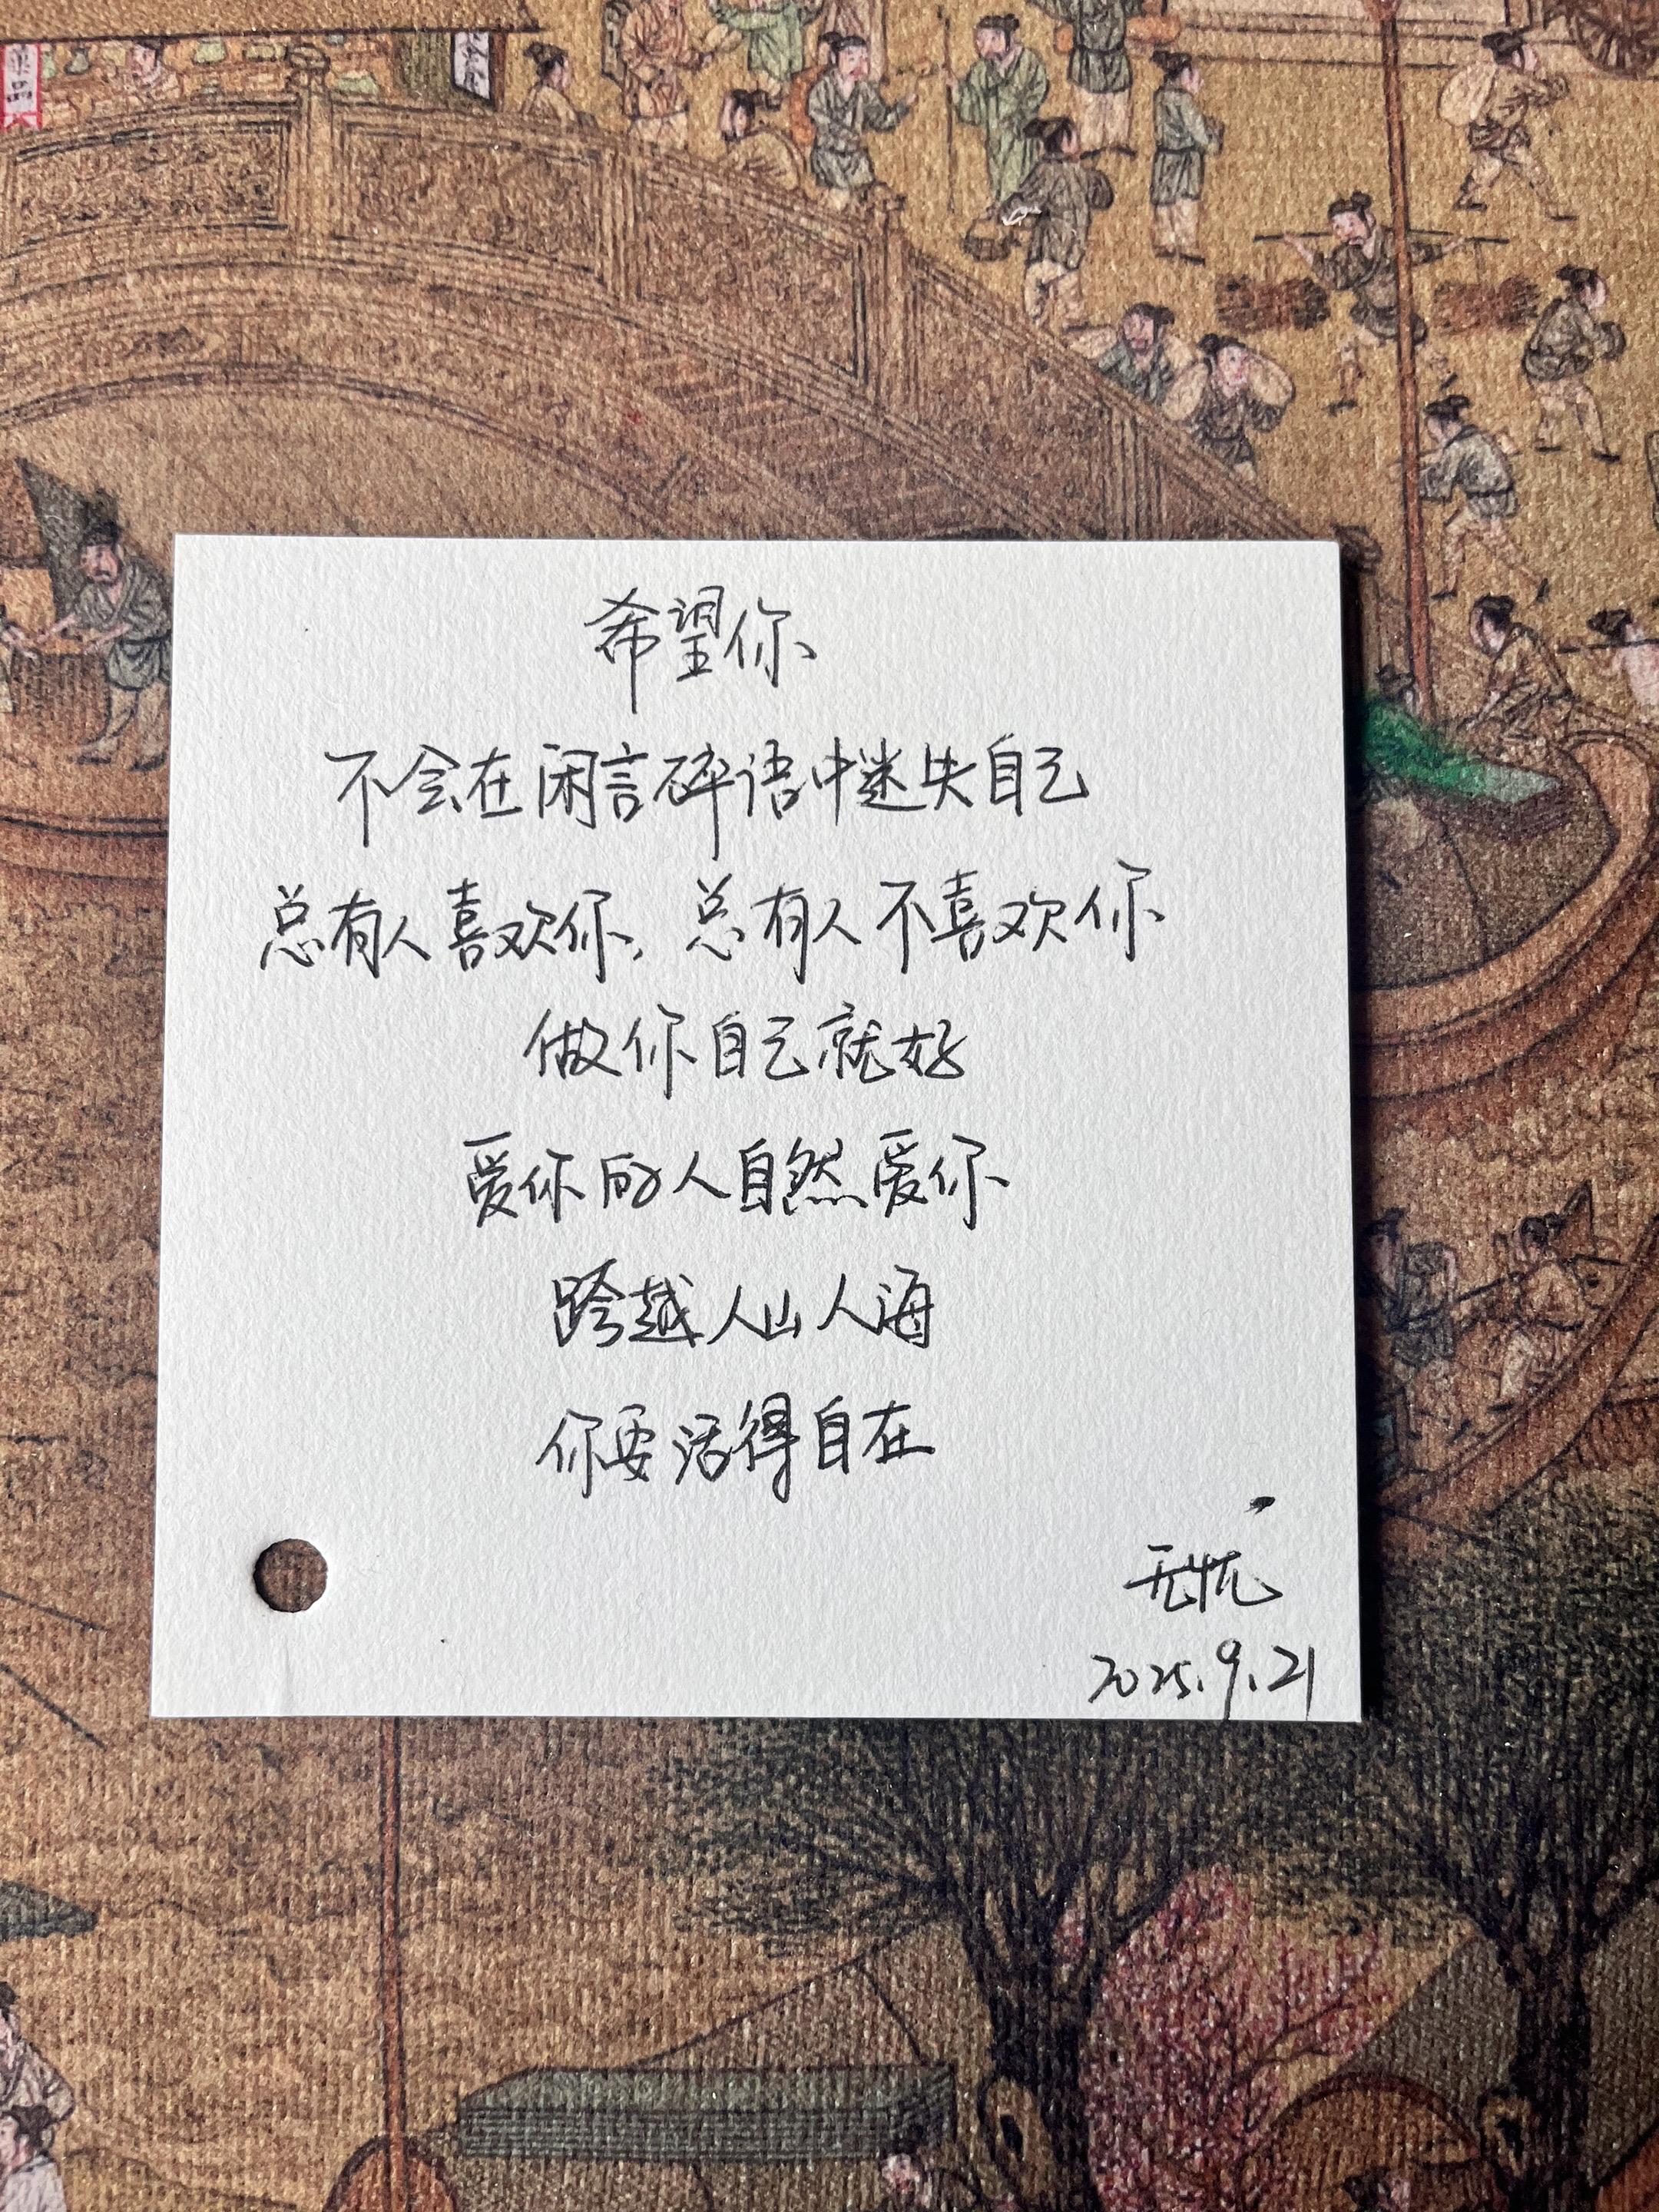 希望你
不会在闲言碎语中迷失自己
总有人喜欢你，总有人不喜欢你
做你自己就好
爱你的人自然爱你
跨越人山人海
你要活得自在
无忧
2025.9.21